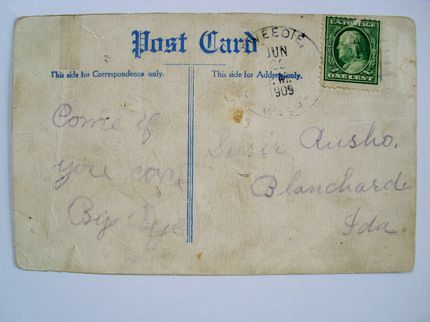 Post Card
This side for Correspondence only.
This side for Address only.
JUN
1909
U.S. POSTAGE
ONE CENT
Come if
you can
By Bye
Susie Rusho.
Blanchard
Ida.